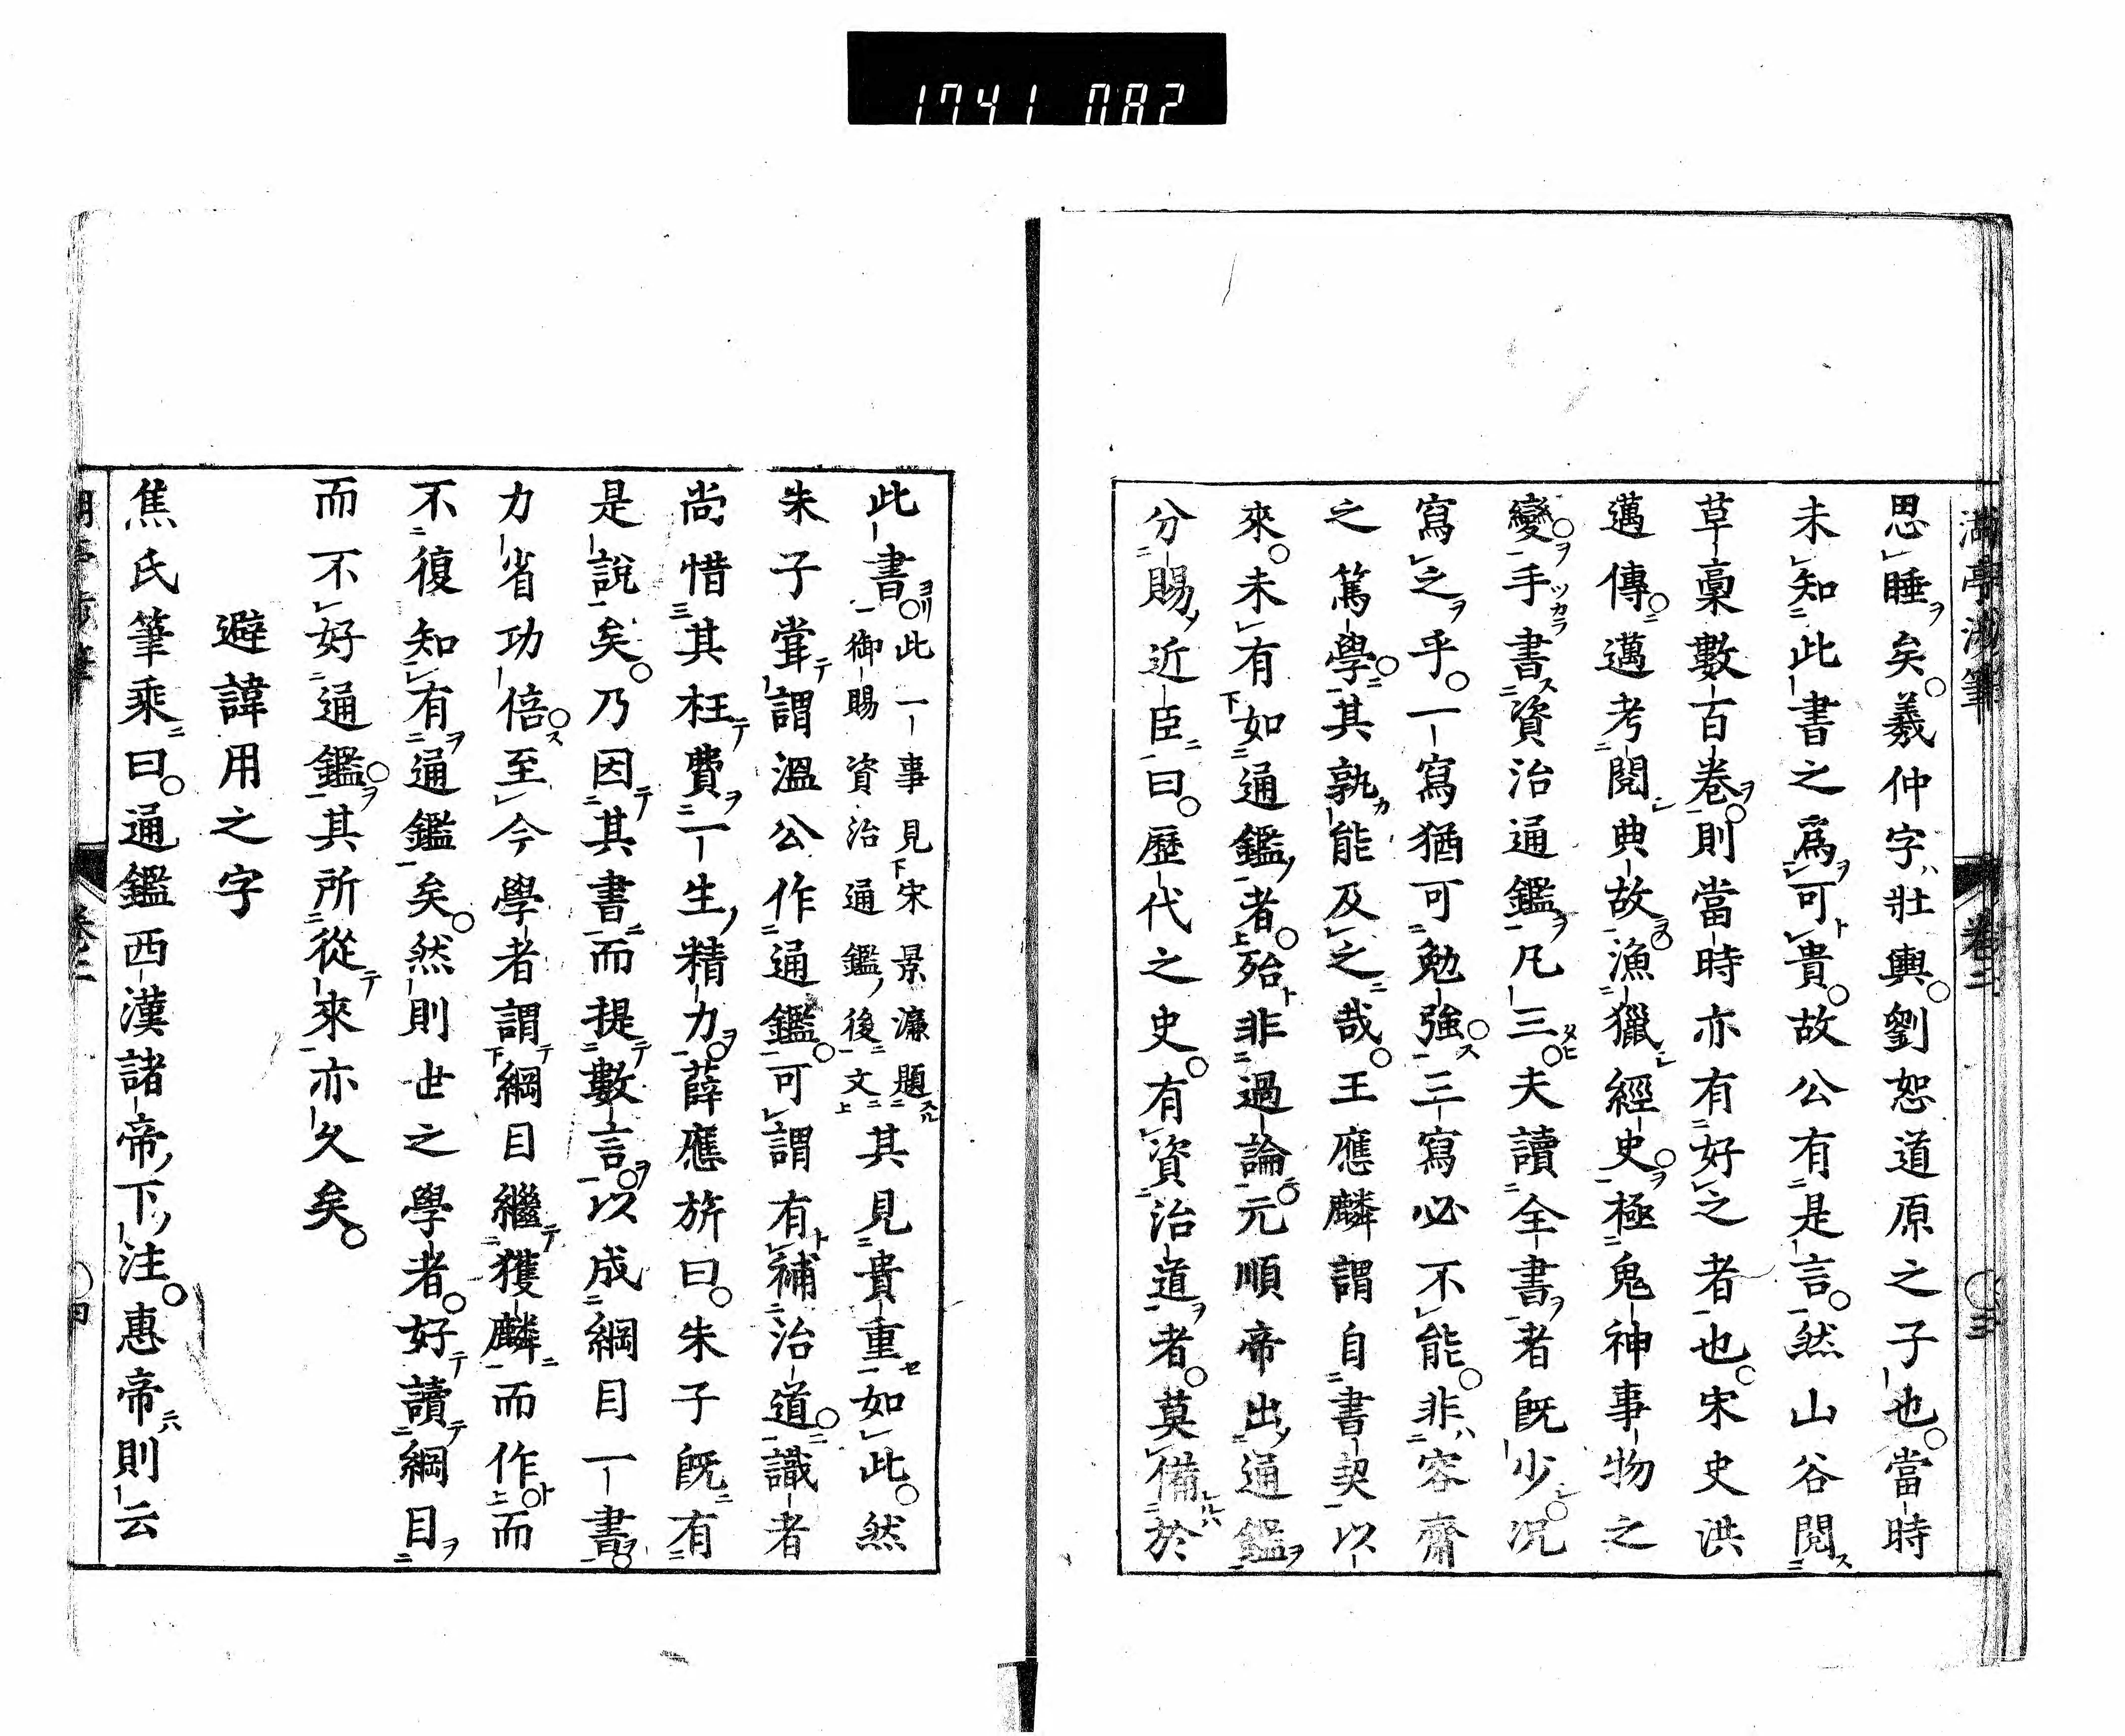 1741 082
湖亭渉筆 卷二 〇三
思睡矣羲仲字壯輿劉恕道原之子也當時
未知此書之爲可貴故公有是言然山谷閱
草稾數百卷則當時亦有好之者也宋史洪
邁傳邁考閱典故漁獵經史極鬼神事物之
變手書資治通鑑凡三夫讀全書者旣少況
寫之乎一寫猶可勉強三寫必不能非容齋
之篤學其孰能及之哉王應麟謂自書契以
來未有如通鑑者殆非過論元順帝出通鑑
分賜近臣曰歷代之史有資治道者莫備於
此書此一事見宋景濂題
御賜資治通鑑後文其見貴重如此然
朱子甞謂溫公作通鑑可謂有補治道識者
尚惜其枉費一生精力薛應旂曰朱子旣有
是說矣乃因其書而提數言以成綱目一書
力省功倍至今學者謂綱目繼獲麟而作而
不復知有通鑑矣然則世之學者好讀綱目
而不好通鑑其所從來亦久矣
避諱用之字
焦氏筆乘曰通鑑西漢諸帝下注惠帝則云
卷二 〇四